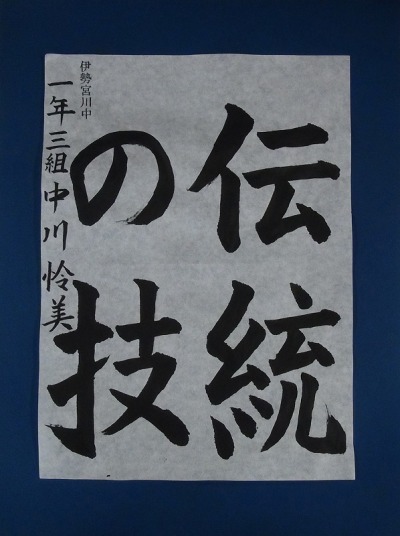 伝統
の技
伊勢宮川中
一年三組中川怜美